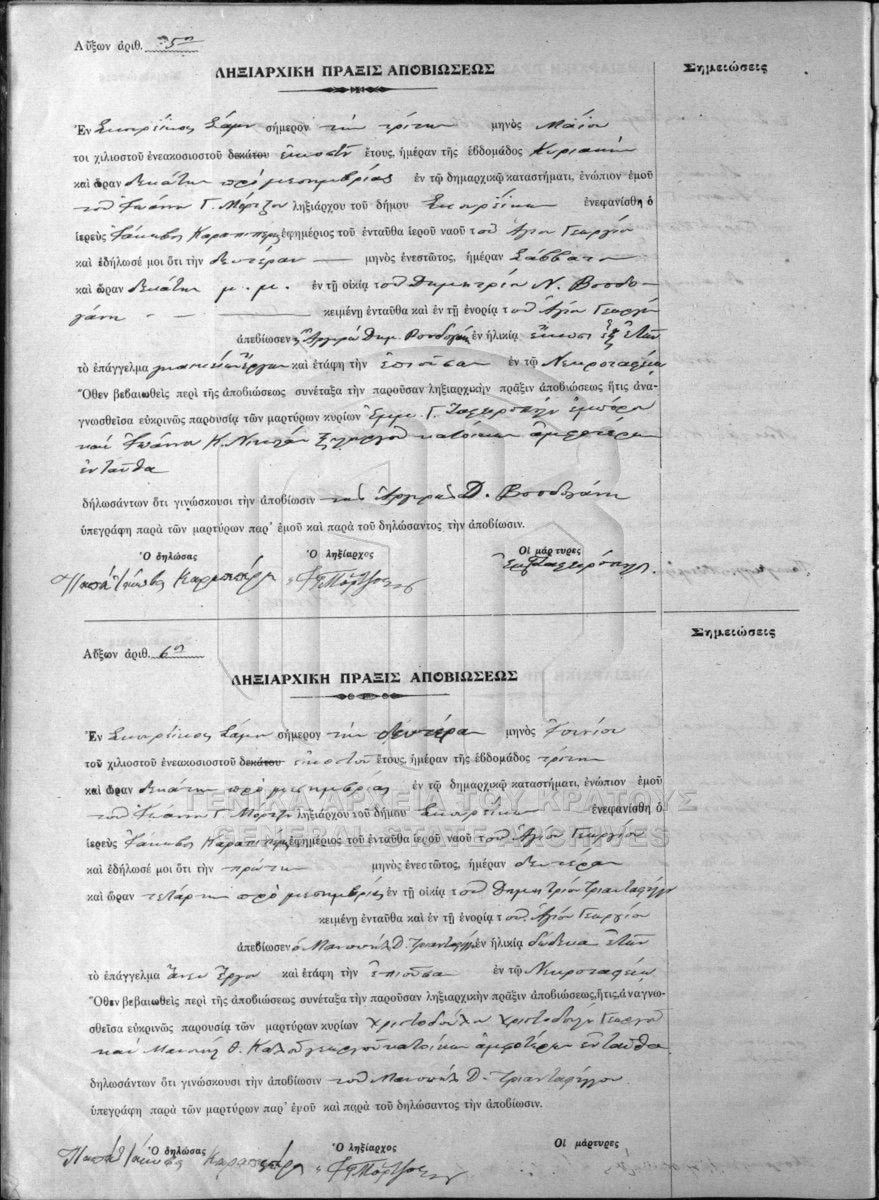 Αὔξων ἀριθ. 5η
ΛΗΞΙΑΡΧΙΚΗ ΠΡΑΞΙΣ ΑΠΟΒΙΩΣΕΩΣ
Σημειώσεις
Ἐν Σάμου σήμερον τὴν τρίτην μηνὸς Μαΐου
τοῦ χιλιοστοῦ ἐνεακοσιοστοῦ δεκάτου εἰκοστοῦ ἔτους, ἡμέραν τῆς ἑβδομάδος Κυριακὴν
καὶ ὥραν δεκάτην πρὸ μεσημβρίας ἐν τῷ δημαρχικῷ καταστήματι, ἐνώπιον ἐμοῦ
τοῦ Ἰωάνν Γ. Μόρτζου ληξιάρχου τοῦ δήμου ἐνεφανίσθη ὁ
ἱερεὺς Ἰάκωβος ἐφημέριος τοῦ ἐνταῦθα ἱεροῦ ναοῦ τοῦ Ἁγίου Γεωργίου
καὶ ἐδήλωσέ μοι ὅτι τὴν δευτέραν μηνὸς ἐνεστῶτος, ἡμέραν Σάββατον
καὶ ὥραν δεκάτην μ. μ. ἐν τῇ οἰκίᾳ τοῦ Δημητρίου Ν.
κειμένῃ ἐνταῦθα καὶ ἐν τῇ ἐνορίᾳ τοῦ Ἁγίου Γεωργίου
ἀπεβίωσεν ἡ Ἀργυρῶ Δημ. ἐν ἡλικίᾳ εἴκοσι ἓξ ἐτῶν
τὸ ἐπάγγελμα καὶ ἐτάφη τὴν ἐπιοῦσαν ἐν τῷ Νεκροταφείῳ
Ὅθεν βεβαιωθεὶς περὶ τῆς ἀποβιώσεως συνέταξα τὴν παροῦσαν ληξιαρχικὴν πρᾶξιν ἀποβιώσεως ἥτις ἀνα-
γνωσθεῖσα εὐκρινῶς παρουσίᾳ τῶν μαρτύρων κυρίων Ἐμμ. Γ. ἐμπόρου
καὶ Ἰωάννου Κ. κατοίκων ἀμφοτέρων
ἐνταῦθα
δηλωσάντων ὅτι γινώσκουσι τὴν ἀποβίωσιν τῆς Ἀργυρῶς Δ.
ὑπεγράφη παρὰ τῶν μαρτύρων παρ' ἐμοῦ καὶ παρὰ τοῦ δηλώσαντος τὴν ἀποβίωσιν.
Ὁ δηλώσας Ὁ ληξίαρχος Οἱ μάρτυρες
Παπᾶ Ἰάκωβος Γ. Μόρτζος
Αὔξων ἀριθ. 6η
Σημειώσεις
ΛΗΞΙΑΡΧΙΚΗ ΠΡΑΞΙΣ ΑΠΟΒΙΩΣΕΩΣ
Ἐν Σάμου σήμερον τὴν δευτέρα μηνὸς Ἰουνίου
τοῦ χιλιοστοῦ ἐνεακοσιοστοῦ δεκάτου εἰκοστοῦ ἔτους, ἡμέραν τῆς ἑβδομάδος τρίτην
καὶ ὥραν δεκάτην πρὸ μεσημβρίας ἐν τῷ δημαρχικῷ καταστήματι, ἐνώπιον ἐμοῦ
τοῦ Ἰωάνν Γ. Μόρτζου ληξιάρχου τοῦ δήμου ἐνεφανίσθη ὁ
ἱερεὺς Ἰάκωβος ἐφημέριος τοῦ ἐνταῦθα ἱεροῦ ναοῦ τοῦ Ἁγίου Γεωργίου
καὶ ἐδήλωσέ μοι ὅτι τὴν πρώτην μηνὸς ἐνεστῶτος, ἡμέραν δευτέραν
καὶ ὥραν τετάρτην πρὸ μεσημβρίας ἐν τῇ οἰκίᾳ τοῦ Δημητρίου Τριανταφύλλου
κειμένῃ ἐνταῦθα καὶ ἐν τῇ ἐνορίᾳ τοῦ Ἁγίου Γεωργίου
ἀπεβίωσεν ὁ Μανουὴλ Δ. Τριανταφύλλου ἐν ἡλικίᾳ δώδεκα ἐτῶν
τὸ ἐπάγγελμα ἄνευ ἔργου καὶ ἐτάφη τὴν ἐπιοῦσαν ἐν τῷ Νεκροταφείῳ
Ὅθεν βεβαιωθεὶς περὶ τῆς ἀποβιώσεως συνέταξα τὴν παροῦσαν ληξιαρχικὴν πρᾶξιν ἀποβιώσεως, ἥτις, ἀναγνω-
σθεῖσα εὐκρινῶς παρουσίᾳ τῶν μαρτύρων κυρίων Χριστοδούλου Χριστοδούλου
καὶ Μανουὴλ Θ. κατοίκων ἀμφοτέρων ἐνταῦθα
δηλωσάντων ὅτι γινώσκουσι τὴν ἀποβίωσιν τοῦ Μανουὴλ Δ. Τριανταφύλλου
ὑπεγράφη παρὰ τῶν μαρτύρων παρ' ἐμοῦ καὶ παρὰ τοῦ δηλώσαντος τὴν ἀποβίωσιν.
Ὁ δηλώσας Ὁ ληξίαρχος Οἱ μάρτυρες
Παπᾶ Ἰάκωβος Γ. Μόρτζος
ΓΕΝΙΚΑ ΑΡΧΕΙΑ ΤΟΥ ΚΡΑΤΟΥΣ
GENERAL STATE ARCHIVES